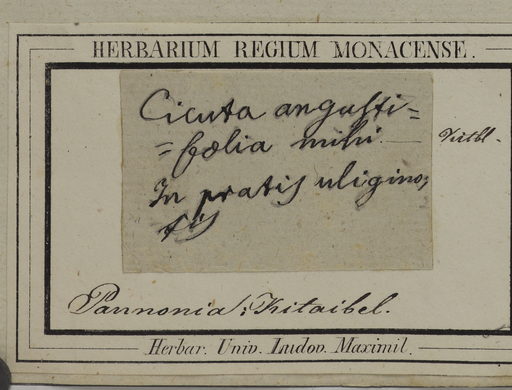 HERBARIUM REGIUM MONACENSE.
Cicuta angusti=
=foelia mihi. — Kitbl.
In pratis uligino,
sis
Pannonia; Kitaibel.
Herbar. Univ. Ludov. Maximil.